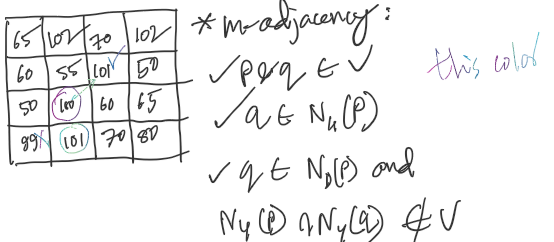 65 102 70 102
60 55 101 50
50 100 60 65
99 101 70 80
* m-adjacency:
✓ p & q ∈ V
✓ q ∈ N4(P)
✓ q ∈ ND(P) and
N4(P) ∩ N4(q) ∉ V
this color